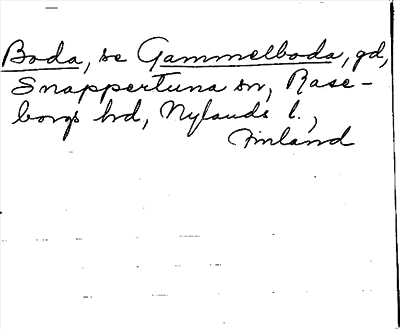 Boda, se Gammelboda, gd,
Snappertuna sn, Rase-
borgs hd, Nylands l.,
Finland